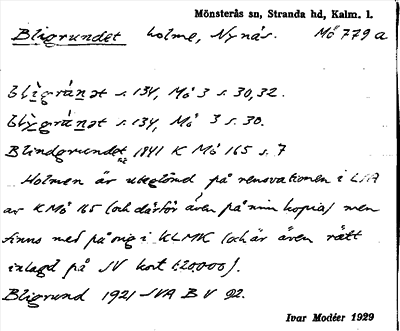 Mönsterås sn, Stranda hd, Kalm. l.
Bligrundet holme, Nynäs. Mö 779 a
bligránət s. 134, Mö 3 s. 30, 32.
blygránət s. 134, Mö 3 s. 30.
Blindgrundet 1841 K Mö 165 s. 7
Holmen är uteglömd på renovationen i LSA
av K Mö 165 (och därför även på min kopia) men
finns med på orig i KLMK (och är även rätt
inlagd på SV kort 1:20.000).
Bligrund 1921 SVA B V 92.
Ivar Modéer 1929